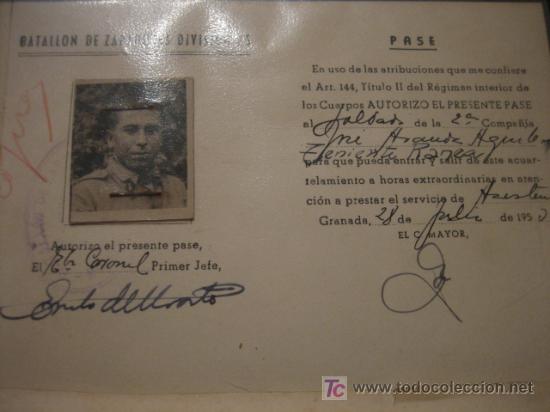 BATALLON DE ZAPADORES DIVISIONES
Autorizo el presente pase,
El Tte Coronel Primer Jefe,
PASE
En uso de las atribuciones que me confiere
el Art. 144, Título II del Régimen interior de
los Cuerpos AUTORIZO EL PRESENTE PASE
al Soldado de la 2ª Compañía
José Aranda
para que pueda entrar y salir de este acuar-
telamiento a horas extraordinarias en aten-
ción a prestar el servicio de
Granada, 28 de Julio de 195
EL C. MAYOR,
TC www.todocoleccion.net